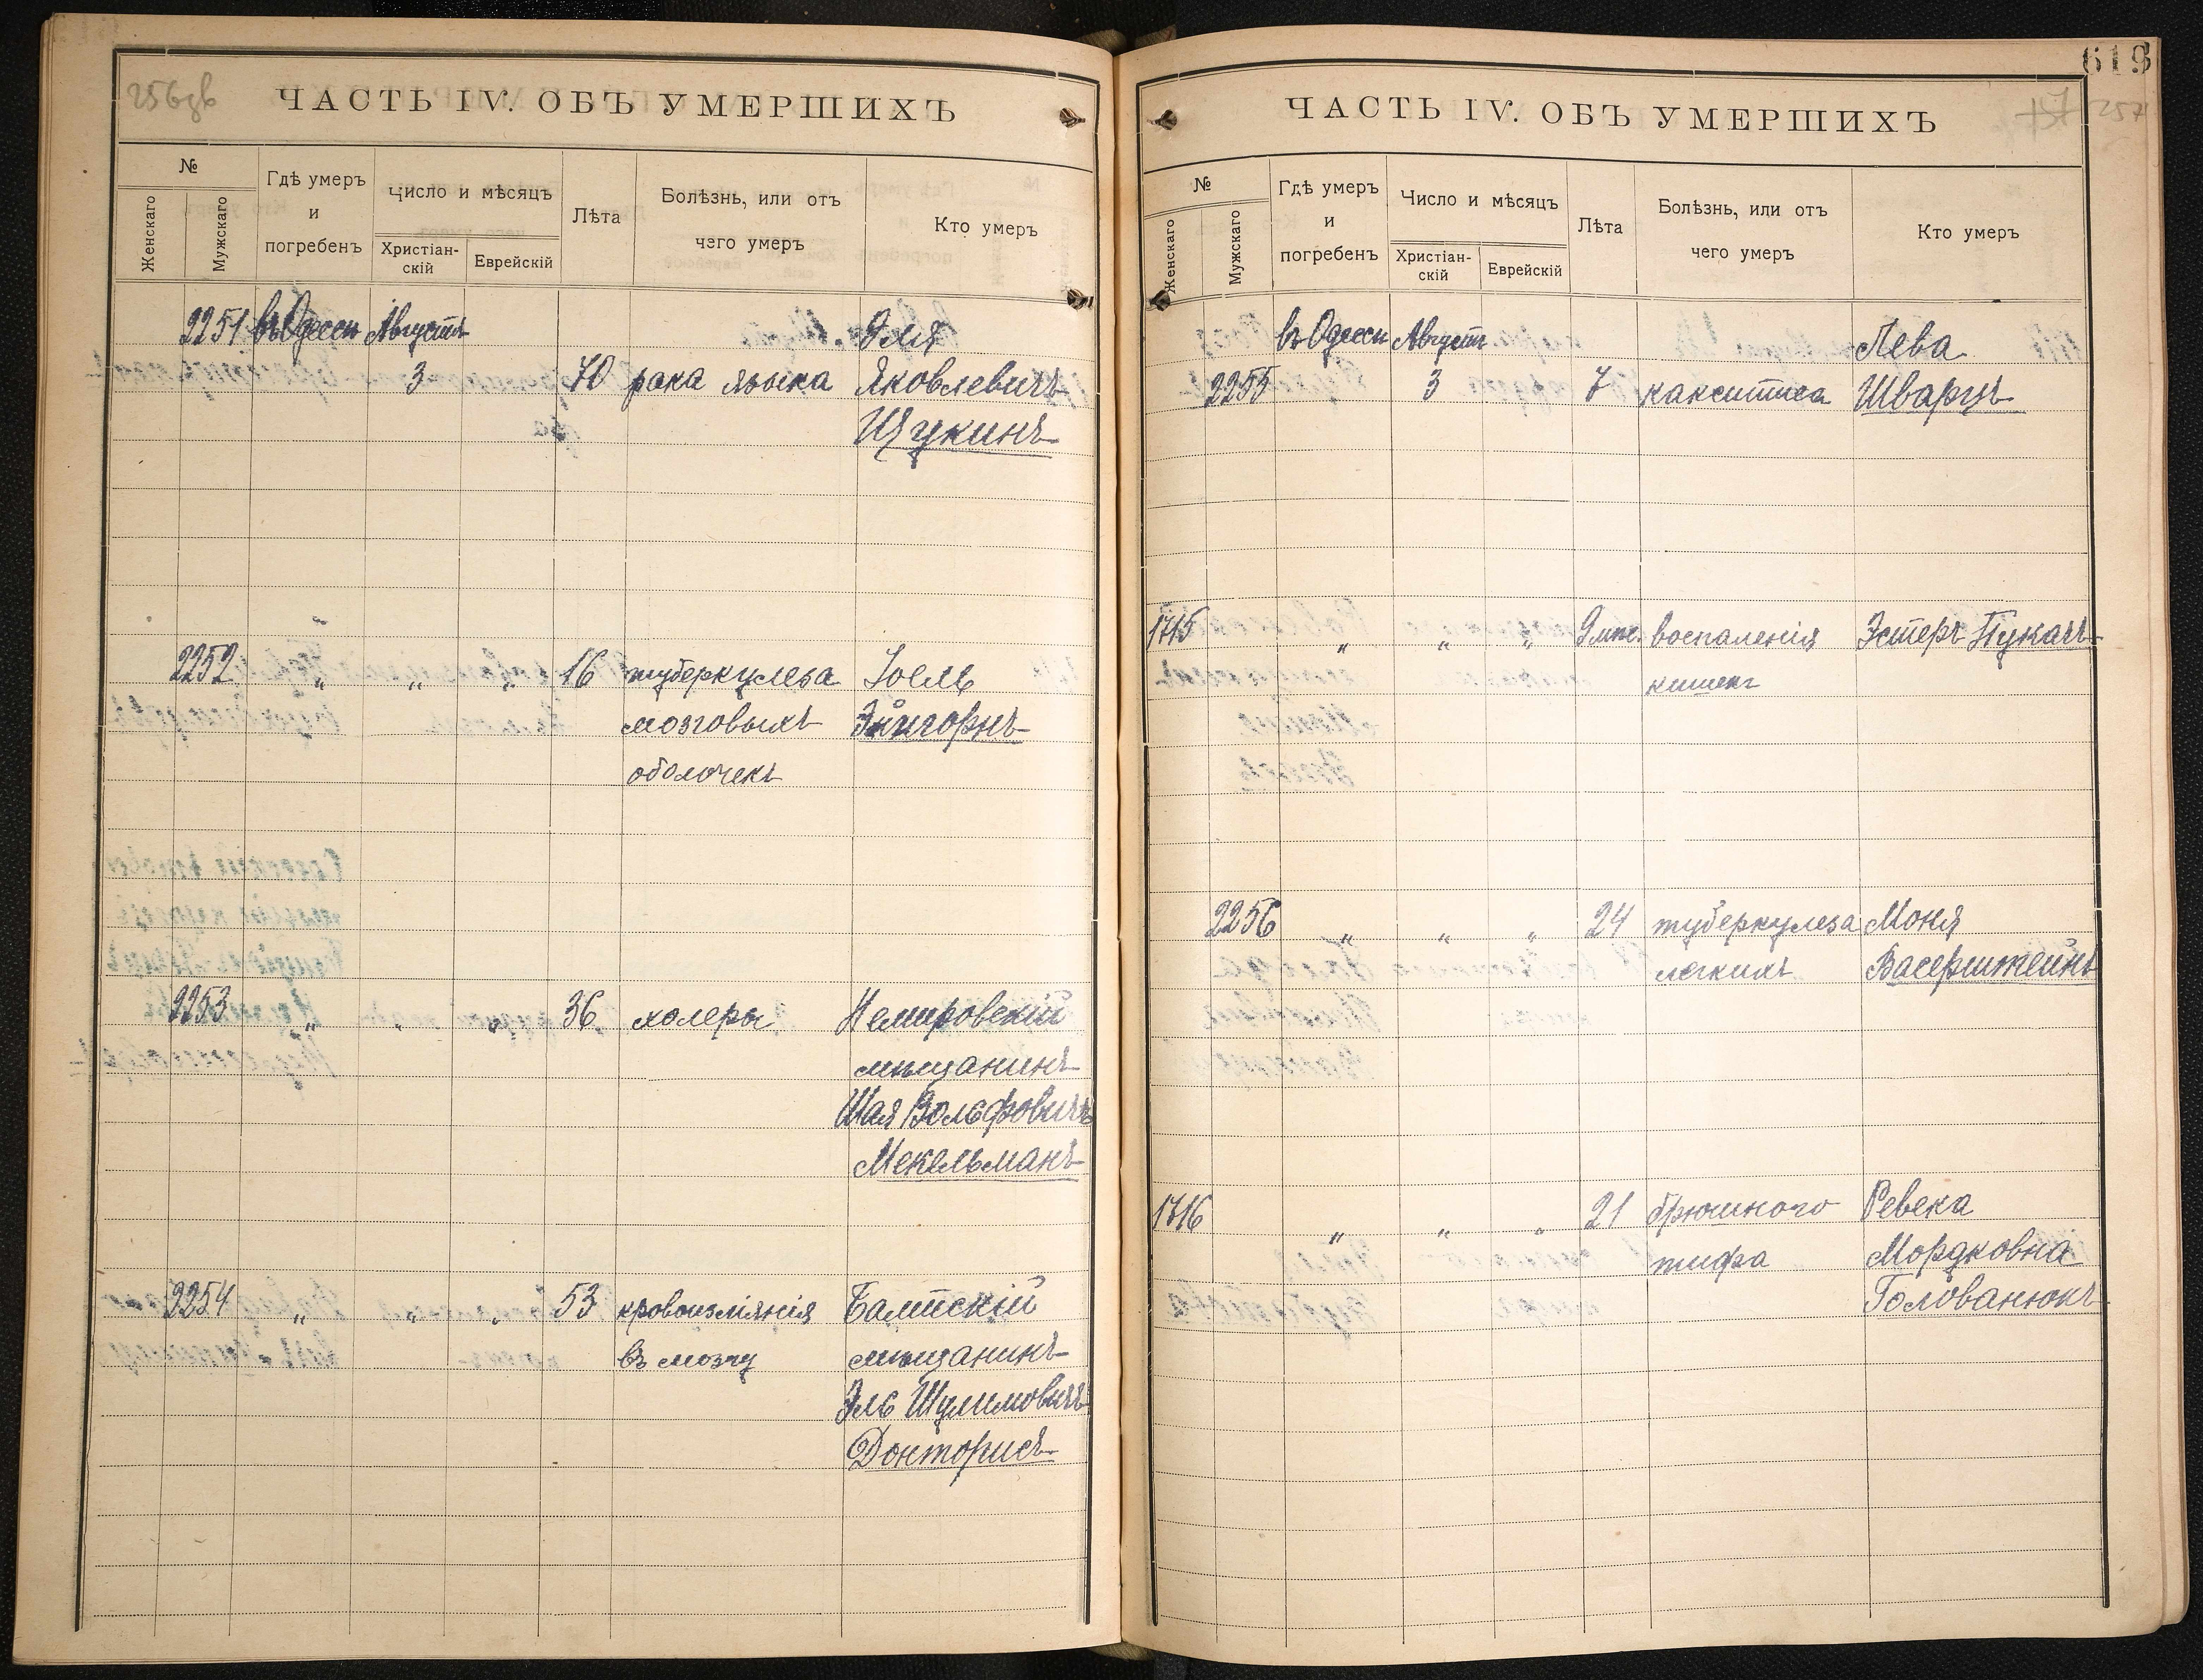 256зв
ЧАСТЬ IV. ОБЪ УМЕРШИХЪ
№
Женскаго
Мужскаго
Гдѣ умеръ
и
погребенъ
Число и мѣсяцъ
Христіан-
скій
Еврейскій
Лѣта
Болѣзнь, или отъ
чего умеръ
Кто умеръ
2251 въ Одессѣ Августа Эля
3 70 рака языка Яковлевичъ
Щукинъ
2252 " " " 16 туберкулеза Іоель
мозговыхъ Эйнгорнъ
оболочекъ
2253 " " " 36 холеры Немировскій
мѣщанинъ
Шая Вольфовичъ
Мекельманъ
2254 " " " 53 кровоизліянія Балтскій
въ мозгу мѣщанинъ
Эль Шулимовичъ
Докторисъ
619
257
ЧАСТЬ IV. ОБЪ УМЕРШИХЪ
№
Женскаго
Мужскаго
Гдѣ умеръ
и
погребенъ
Число и мѣсяцъ
Христіан-
скій
Еврейскій
Лѣта
Болѣзнь, или отъ
чего умеръ
Кто умеръ
въ Одессѣ Августа Лева
2255 3 7 Шварцъ
1715 " " " воспаленія Эстеръ Пукачъ
кишекъ
2256 " " " 24 туберкулеза Моня
легкихъ Васерштейнъ
1716 " " " 21 брюшного Ревека
тифа Мордковна
Голованюкъ